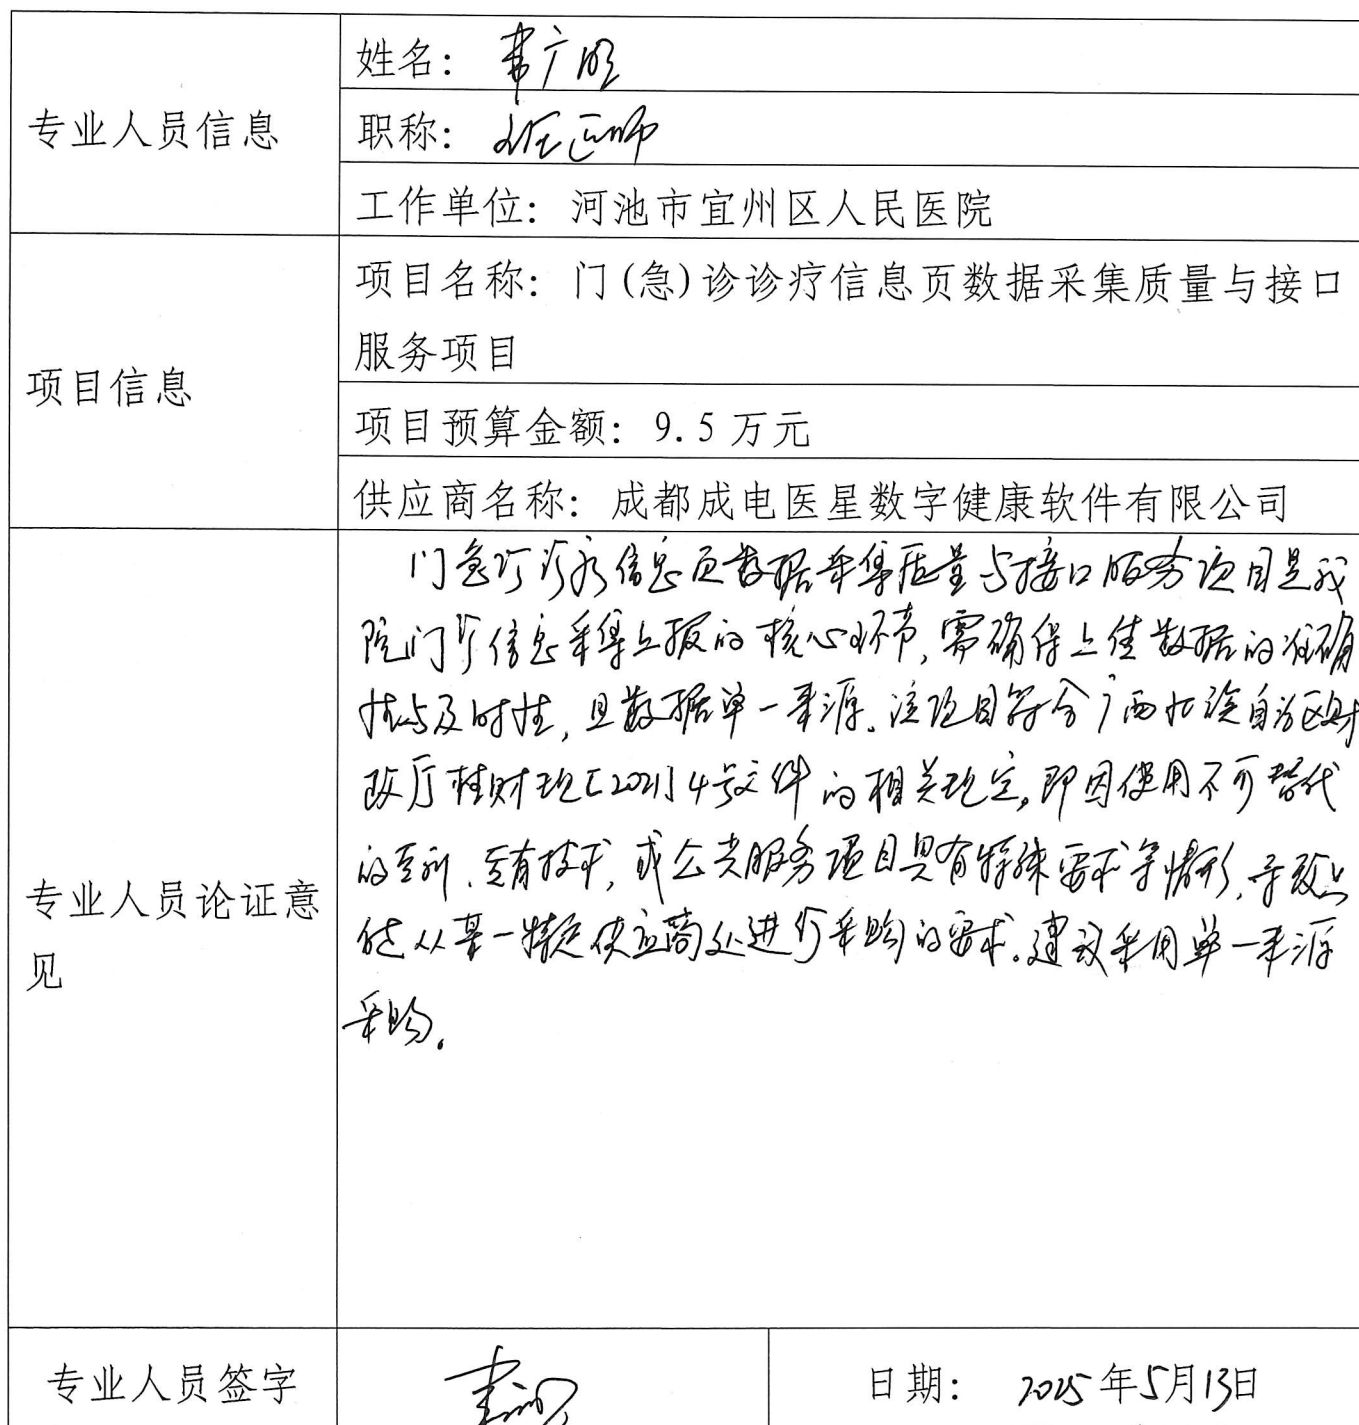 专业人员信息
姓名：韦广明
职称：主任医师
工作单位：河池市宜州区人民医院
项目信息
项目名称：门(急)诊诊疗信息页数据采集质量与接口
服务项目
项目预算金额：9.5万元
供应商名称：成都成电医星数字健康软件有限公司
专业人员论证意
见
门急诊诊疗信息页数据采集质量与接口服务项目是我
院门诊信息采集上报的核心环节,需确保上传数据的准确
性与及时性,且数据单一来源。该项目符合广西壮族自治区财
政厅桂财规[2021]4号文件的相关规定,即因使用不可替代
的专利、专有技术,或公共服务项目具有特殊要求等情形,导致只
能从某一特定供应商处进行采购的要求。建议采用单一来源
采购。
专业人员签字
日期：2025年5月13日